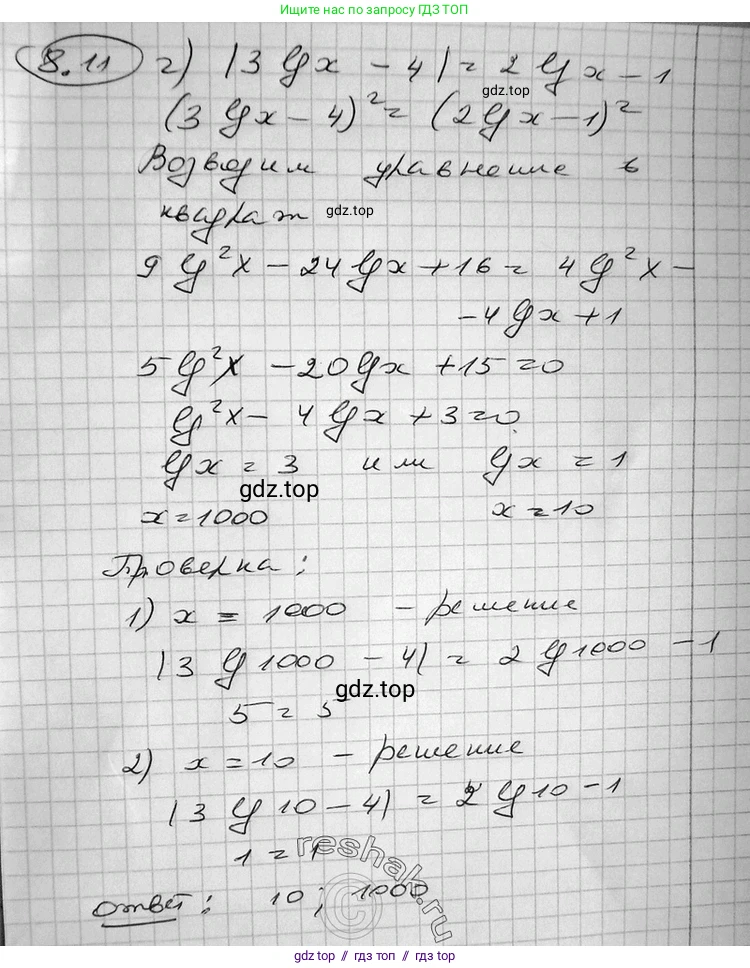 Ищите нас по запросу ГДЗ ТОП
8.11 г) |3 lg x - 4| = 2 lg x - 1
gdz.top
(3 lg x - 4)² = (2 lg x - 1)²
Возводим уравнение в
квадрат gdz.top
9 lg²x - 24 lg x + 16 = 4 lg²x -
- 4 lg x + 1
5 lg²x - 20 lg x + 15 = 0
lg²x - 4 lg x + 3 = 0.
lg x = 3 или lg x = 1
gdz.top
x = 1000 x = 10
Проверка:
1) x = 1000 - решение
|3 lg 1000 - 4| = 2 lg 1000 - 1
gdz.top
5 = 5
2) x = 10 - решение
|3 lg 10 - 4| = 2 lg 10 - 1
1 = 1
Ответ: 10; 1000
reshak.ru
gdz.top // гдз.топ // gdz.top